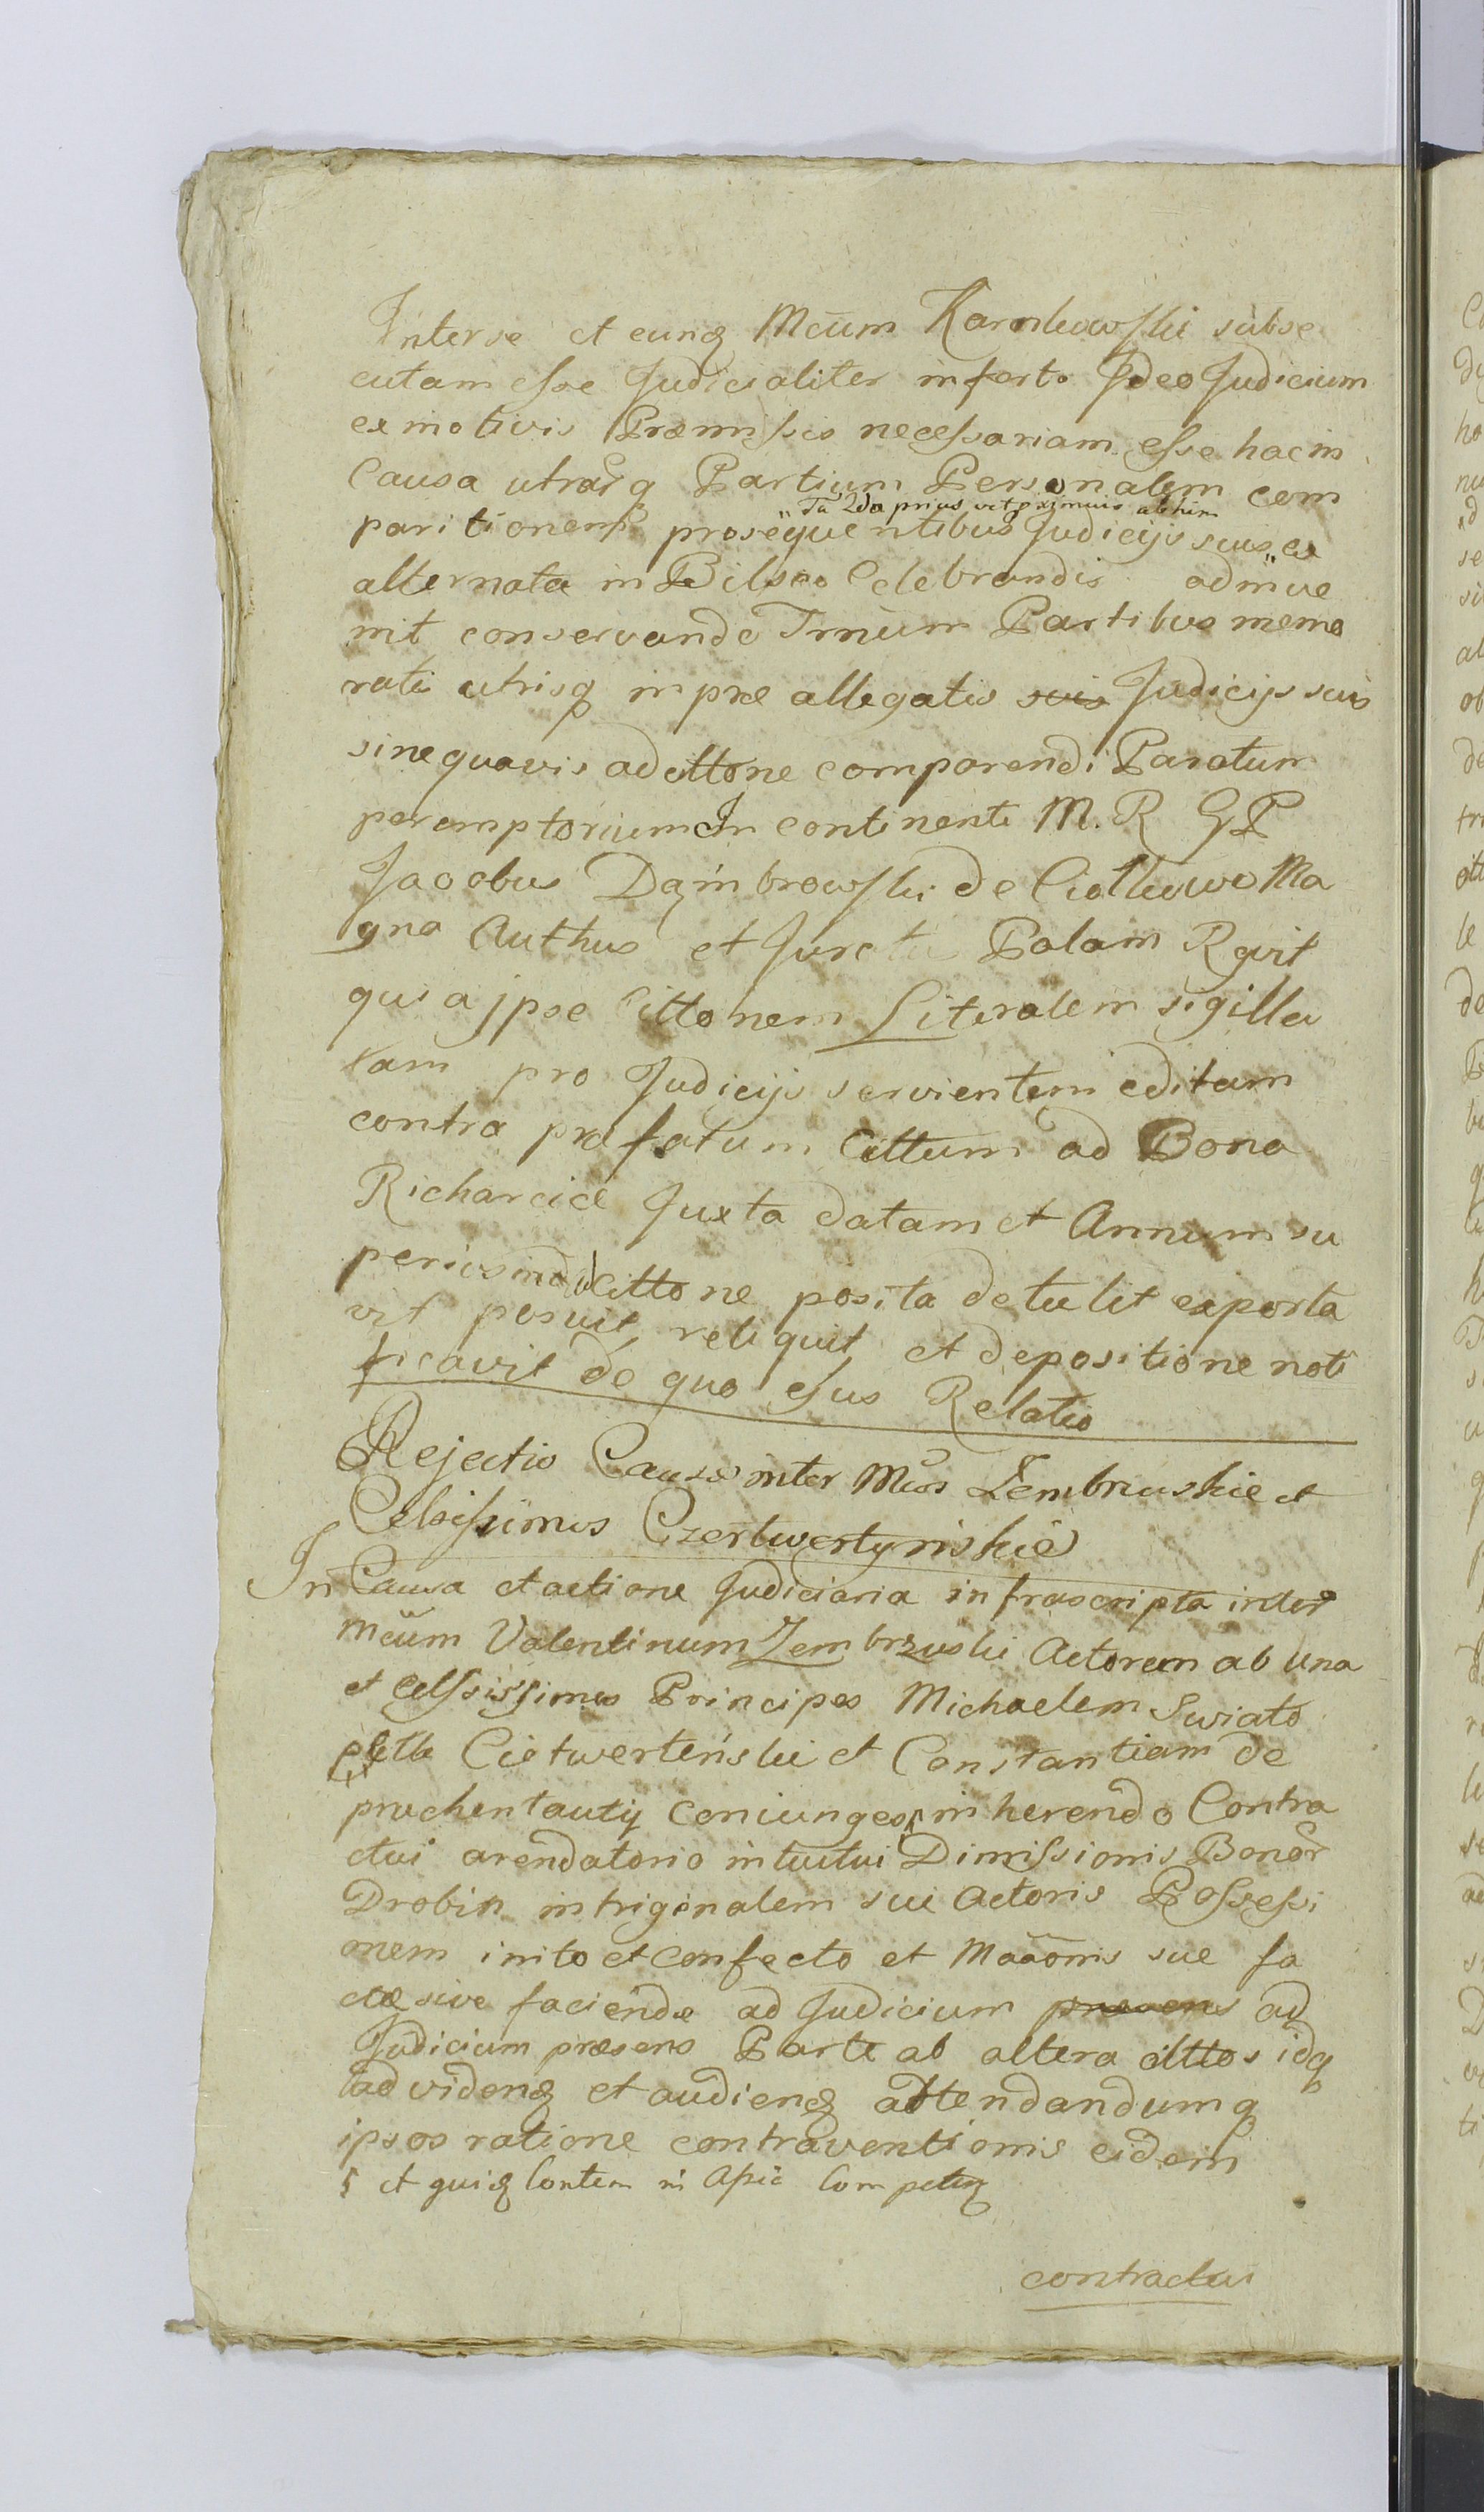 Interse et eunq Mcum Karnkowski subse
cutam esse Judicialiter inferto Ideo Judicium
ex motivis Præmissis necessariam esse hac in
Causa utrarq Partium Personalem com
paritionem prosequentibus Judicijs suis ex
alternata in Bilsco Celebrandis adinve
nit conservando Trnum Partibus memo
ratis utrisq in præ allegatis suis Judicijs suis
sine quavis adcittone comparendi Paratum
peremptorium In continenti M. R G P
Jacobus Dąmbrowski de Ciołkowo Ma
gna Authus et Jurat Palam Rgvit
quia jpse Cittonem Literalem sigilla
tam pro Judicijs servientem editam
contra præfatum Cittum ad Bona
Richarcice Juxta datam et Annum su
perius in dicittone posita detulit exporta
vit posuit reliquit et depositione noti
ficavit de quo ejus Relatio
Rejectio Causæ inter Mcos Zembruskie et
Celsissimos Czertwertynskie
In Causa et actione Judiciaria infrascripta inter
Mcum Valentinum Zembrzuski Actorem ab una
et Celssissimos Principes Michaelem Swiato
pełk Cietwerteński et Constantiam de
pruchentauty Coniunges inherendo Contra
ctui arendatorio intuitui Dimissionis Bonor
Drobin in triginalem sui Actoris Possessi
onem inito et confecto et Maãonis suæ fa
ctæ sive faciendæ ad Judicium præsens ad
Judicium præsens Parte ab altera cittos idq
ad videnq et audienq attendandumq
ipsos ratione contraventionis eidem
et quieq Contem in Apie Competeq
contractui